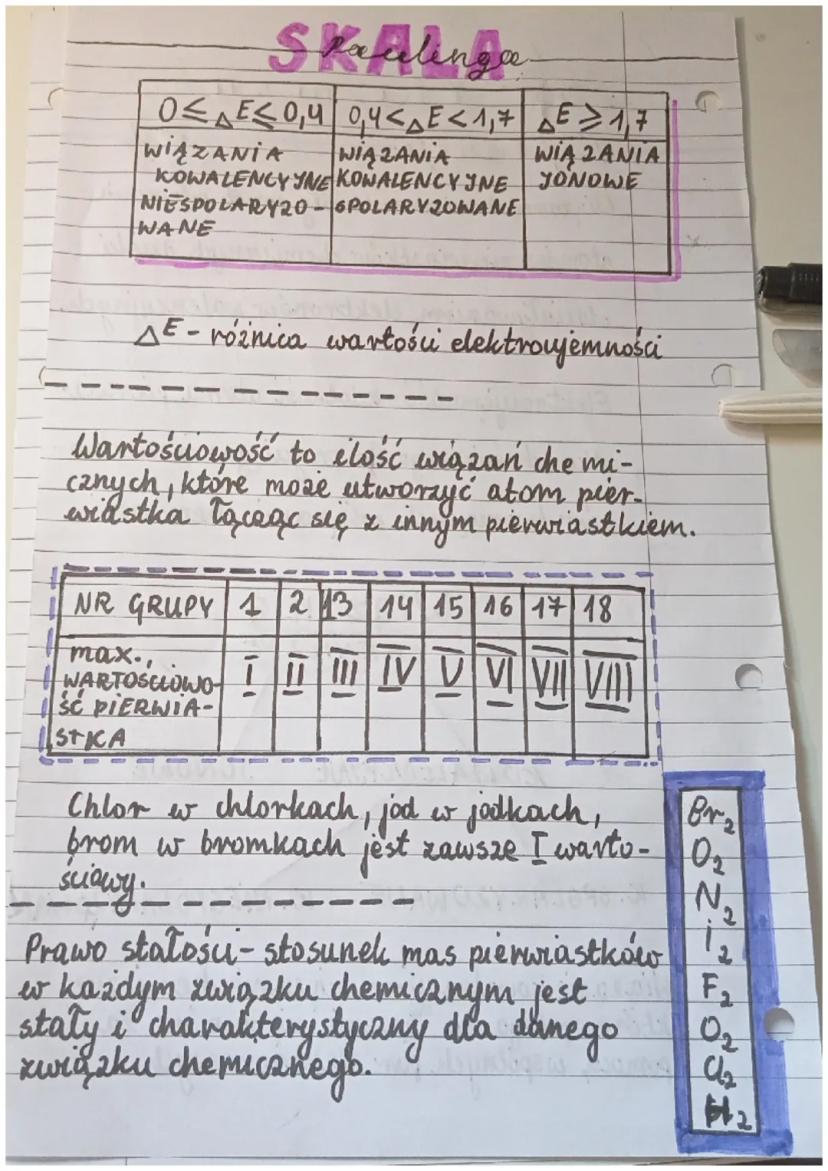 SKALA
Paulinga
0 ≤ △E ≤ 0,4 | 0,4 < △E < 1,7 | △E ≥ 1,7
WIĄZANIA | WIĄZANIA | WIĄZANIA
KOWALENCYJNE | KOWALENCYJNE | JONOWE
NIESPOLARYZO- | SPOLARYZOWANE
WANE
△E - różnica wartości elektroujemności
Wartościowość to ilość wiązań chemi-
cznych, które może utworzyć atom pier-
wiastka łącząc się z innym pierwiastkiem.
NR GRUPY | 1 | 2 | 13 | 14 | 15 | 16 | 17 | 18
max. | I | II | III | IV | V | VI | VII | VIII
WARTOŚCIOWO-
ŚĆ PIERWIA-
STKA
Chlor w chlorkach, jod w jodkach,
brom w bromkach jest zawsze I warto-
ściowy.
Prawo stałości - stosunek mas pierwiastków
w każdym związku chemicznym jest
stały i charakterystyczny dla danego
związku chemicznego.
Br₂
O₂
N₂
i₂
F₂
O₂
Cl₂
H₂